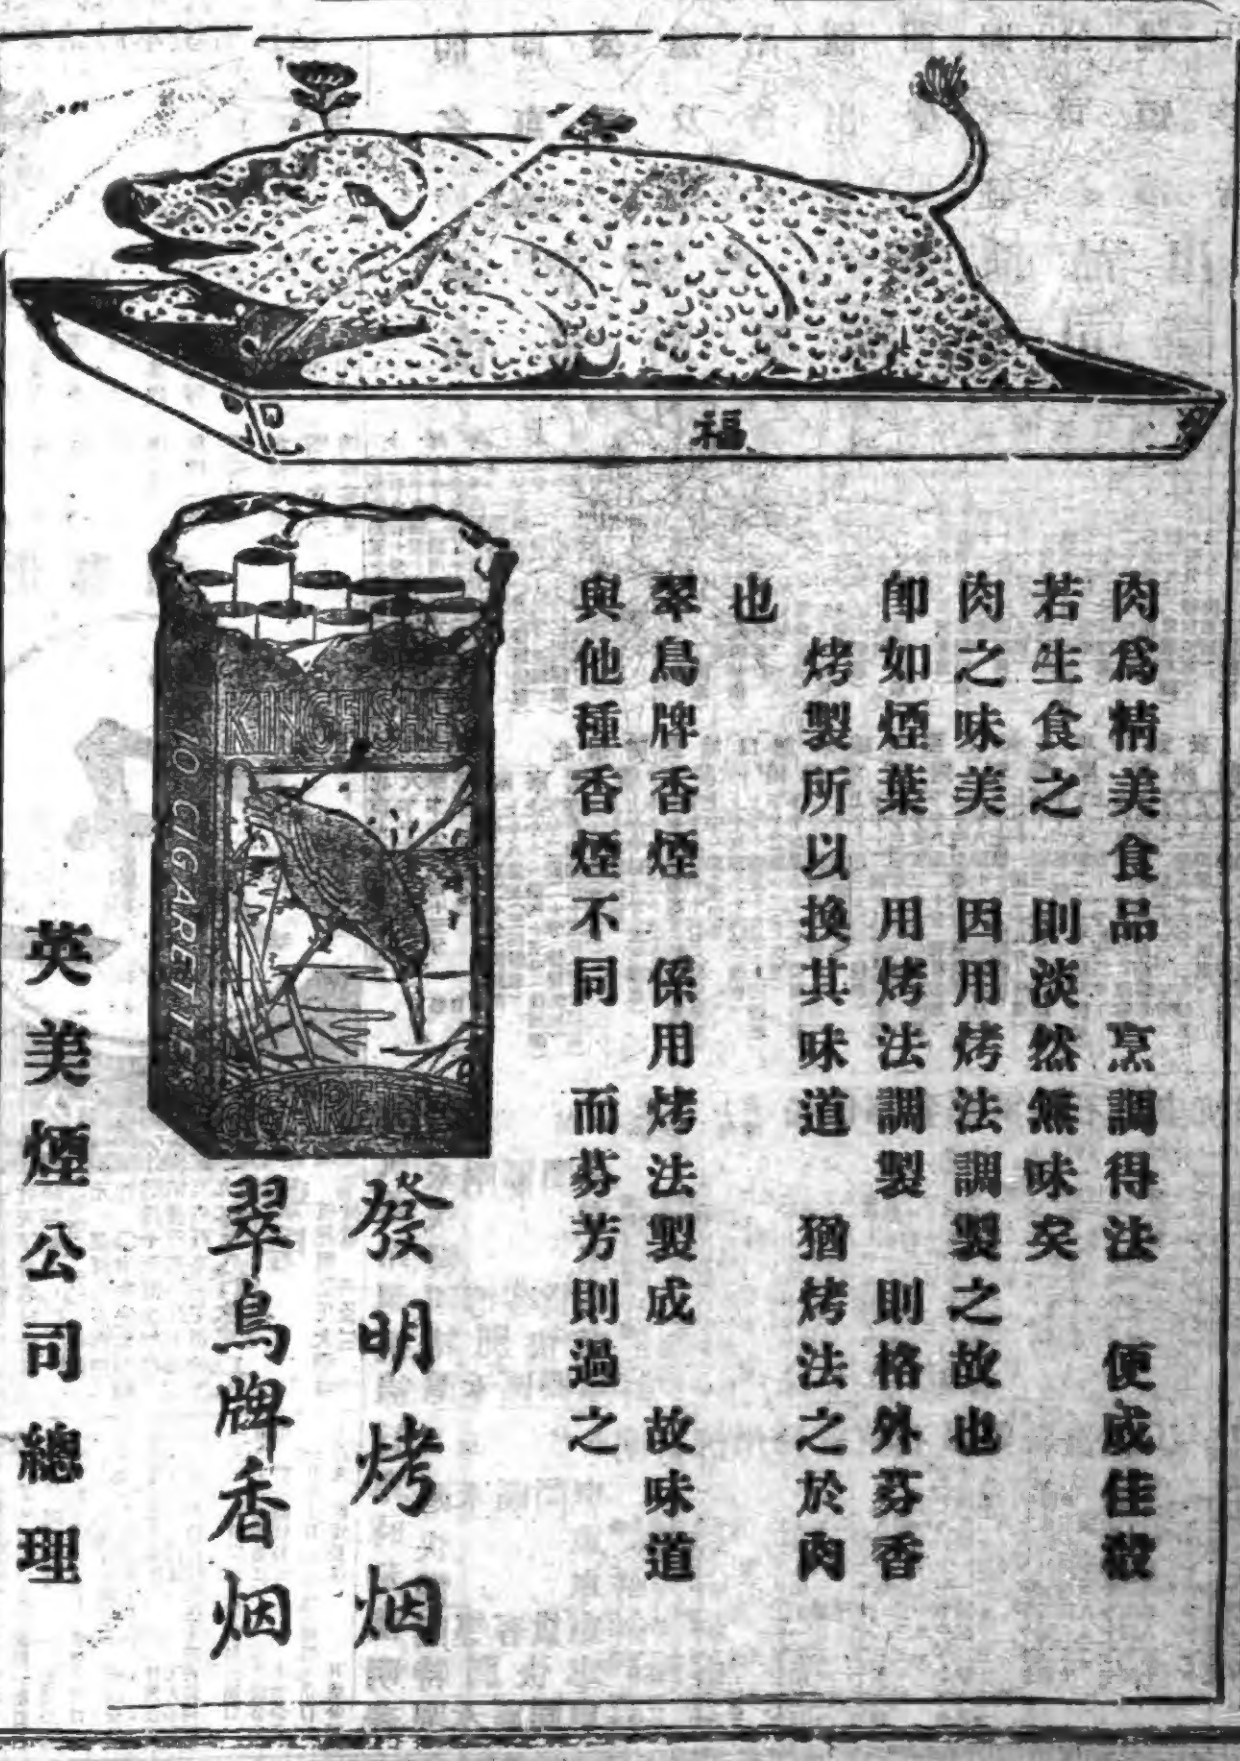 福
肉爲精美食品　烹調得法　便成佳殽
若生食之　則淡然無味矣
肉之味美　因用烤法調製之故也
卽如煙葉　用烤法調製　則格外芬香
烤製所以換其味道　猶烤法之於肉
也
翠鳥牌香煙　係用烤法製成　故味道
與他種香煙不同　而芬芳則過之
KINGFISHER
10 CIGARETTES
CIGARETTES
發明烤烟
翠鳥牌香烟
英美煙公司總理